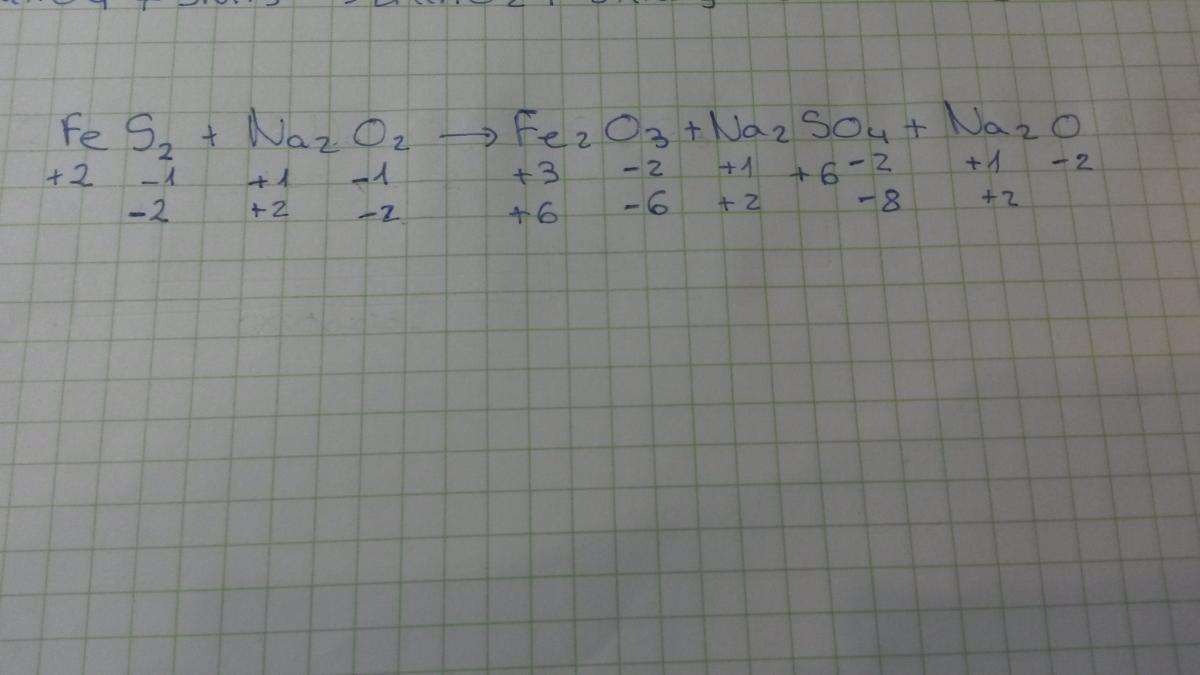 FeS₂ + Na₂O₂ → Fe₂O₃ + Na₂SO₄ + Na₂O
+2 -1 +1 -1 +3 -2 +1 +6 -2 +1 -2
-2 +2 -2 +6 -6 +2 -8 +2